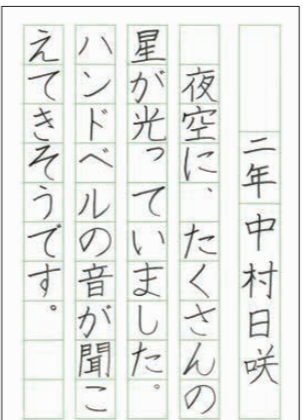 二年 中村日咲
夜空に、たくさんの
星が光っていました。
ハンドベルの音が聞こ
えてきそうです。